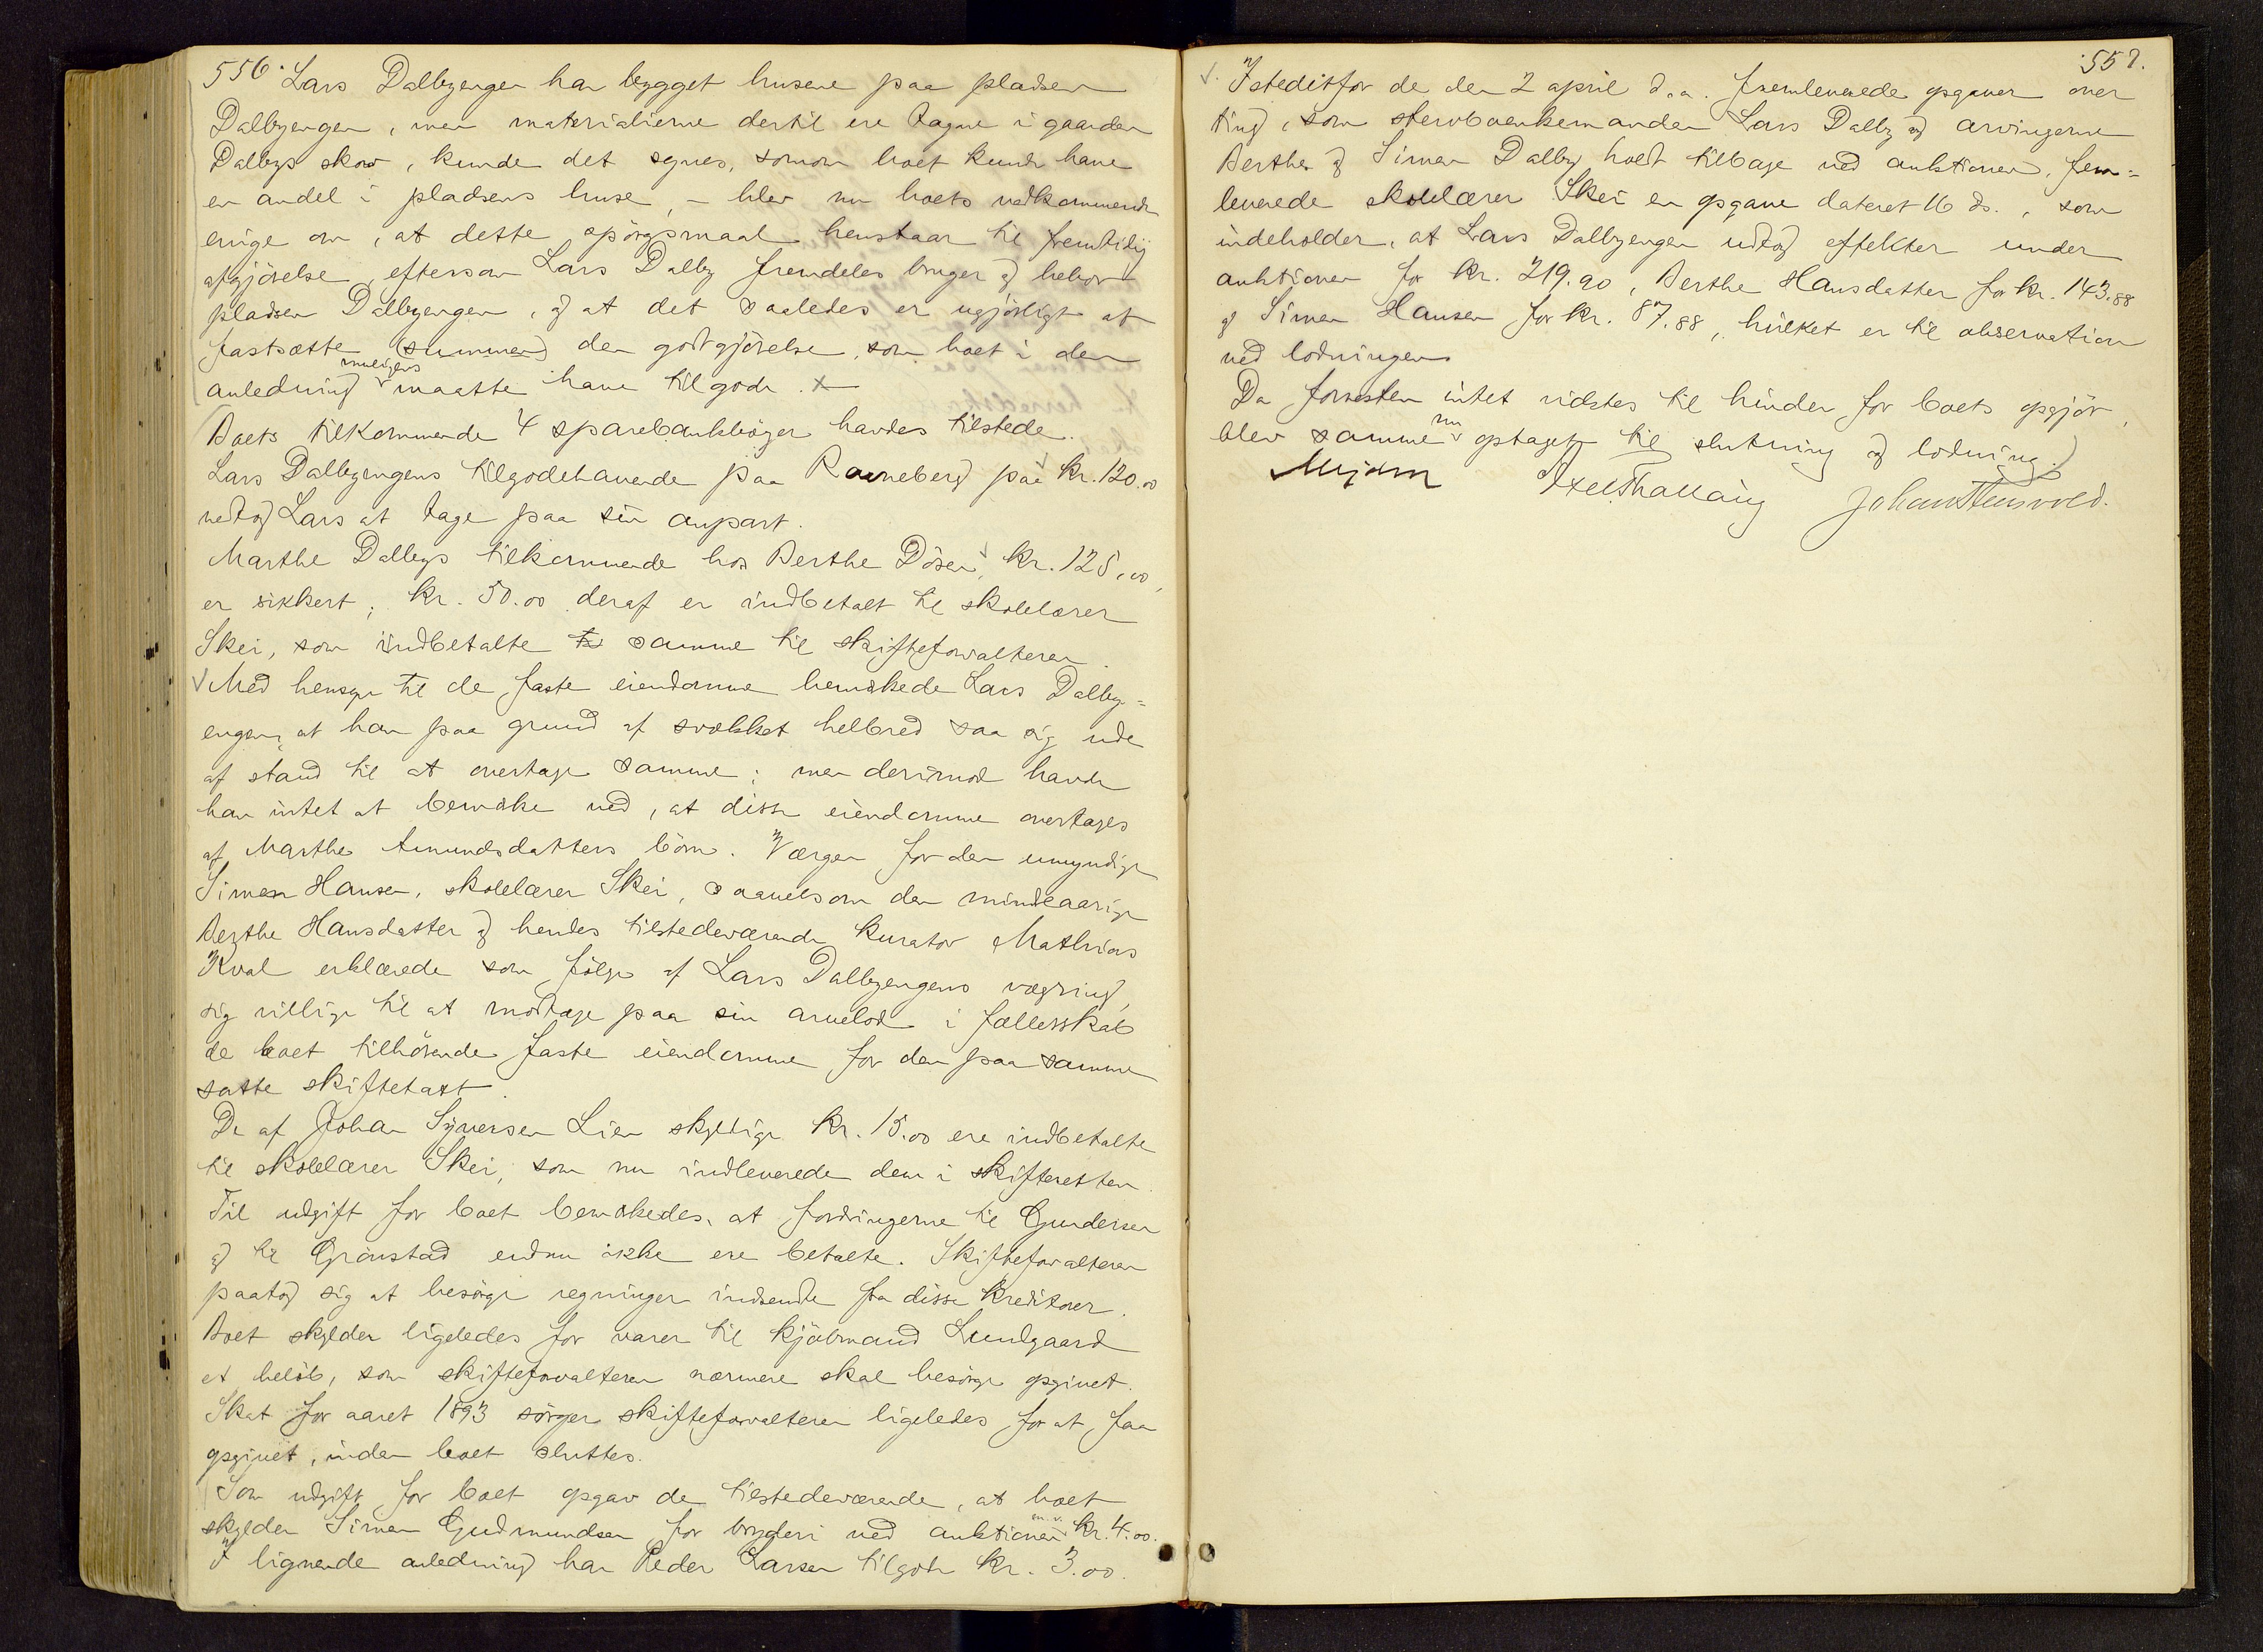 556. Lars Dalbyengen har bygget husene paa pladsen
Dalbyengen, men materialierne dertil ere tagne i gaarden
Dalbys skov, kunde det synes, somom boet kunde have
en andel i pladsens huse, – blev nu boets vedkommende
enige om, at dette spörgsmaal henstaar til fremtidig
afgjörelse, eftersom Lars Dalby fremdeles bruger og bebor
pladsen Dalbyengen, og at det saaledes er ugjörligt at
fastsætte (summen) den godtgjörelse, som boet i den
anledning muligens maatte have tilgode.
Boets tilkommende 4 sparebankböger havdes tilstede.
Lars Dalbyengens tilgodehavende paa Raaneberg paa kr. 120.00
vedtog Lars at tage paa sin anpart.
Marthe Dalbys tilkommende hos Berthe Dösen, kr. 125,00,
er sikkert; kr. 50.00 deraf er indbetalt til skolelærer
Skei, som indbetalte samme til skifteforvalteren.
Med hensyn til de faste eiendomme bemærkede Lars Dalby=
engen, at han paa grund af svækket helbred saa sig ude
af stand til at overtage samme; men derimod havde
han intet at bemærke ved, at disse eiendomme overtages
af Marthe Amundsdatters börn. Værgen for den umyndige
Simen Hansen, skolelærer Skei, saavelsom den mindreaarige
Berthe Hansdatter og hendes tilstedeværende kurator Mathias
Kval erklærede som fölge af Lars Dalbyengens vægring,
sig villige til at modtage paa sin arvelod i fællesskab
de boet tilhörende faste eiendomme for den paa samme
satte skiftetaxt.
De af Johan Syversen Lien skyldige kr. 15.00 ere indbetalte
til skolelærer Skei, som nu indleverede dem i skifteretten.
Til udgift for boet bemærkedes, at fordringerne til Gundersen
og til Grönstad endnu ikke ere betalte. Skifteforvalteren
paatog sig at besörge regninger indsendte fra disse kreditorer.
Boet skylder ligeledes for varer til kjöbmand Lundgaard
et belöb, som skifteforvalteren nærmere skal besörge opgivet.
Skat for aaret 1893 sörger skifteforvalteren ligeledes for at faa
opgivet, inden boet sluttes.
Som udgift for boet opgav de tilstedeværende, at boet
skylder Simen Gudmundsen for bryderi ved auktionen m. v. kr. 4.00.
I lignende anledning har Peder Larsen tilgode kr. 3.00.
557.
Istedetfor de den 2 april d.a. fremleverede opgaver over
ting, som stervboenkemanden Lars Dalby og arvingerne
Berthe og Simen Dalby holdt tilbage ved auktionen, frem=
leverede skolelærer Skei en opgave dateret 16 ds., som
indeholder, at Lars Dalbyengen udtog effekter under
auktionen for kr. 219.90, Berthe Hansdatter for kr. 143.88
og Simen Hansen for kr. 87.88, hvilket er til observation
ved lodningen.
Da forresten intet vidstes til hinder for boets opgjör,
blev samme nu optaget til slutning og lodning.
Axel Thallaug Johan Stensvold.